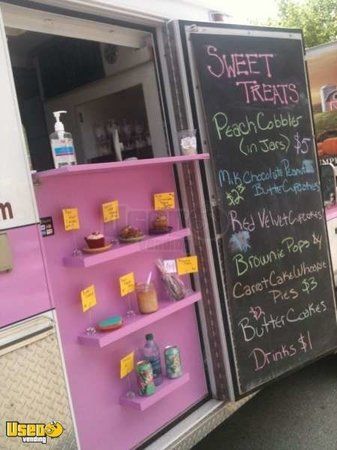 SWEET
TREATS
Peach Cobbler
(in Jars) $5
Milk Chocolate Peanut
$2 Butter Cupcakes
Red Velvet Cupcakes
Brownie Pops
Carrot Cake Whoopie
Pies $3
Butter Cookies
Drinks $1
USED
vending